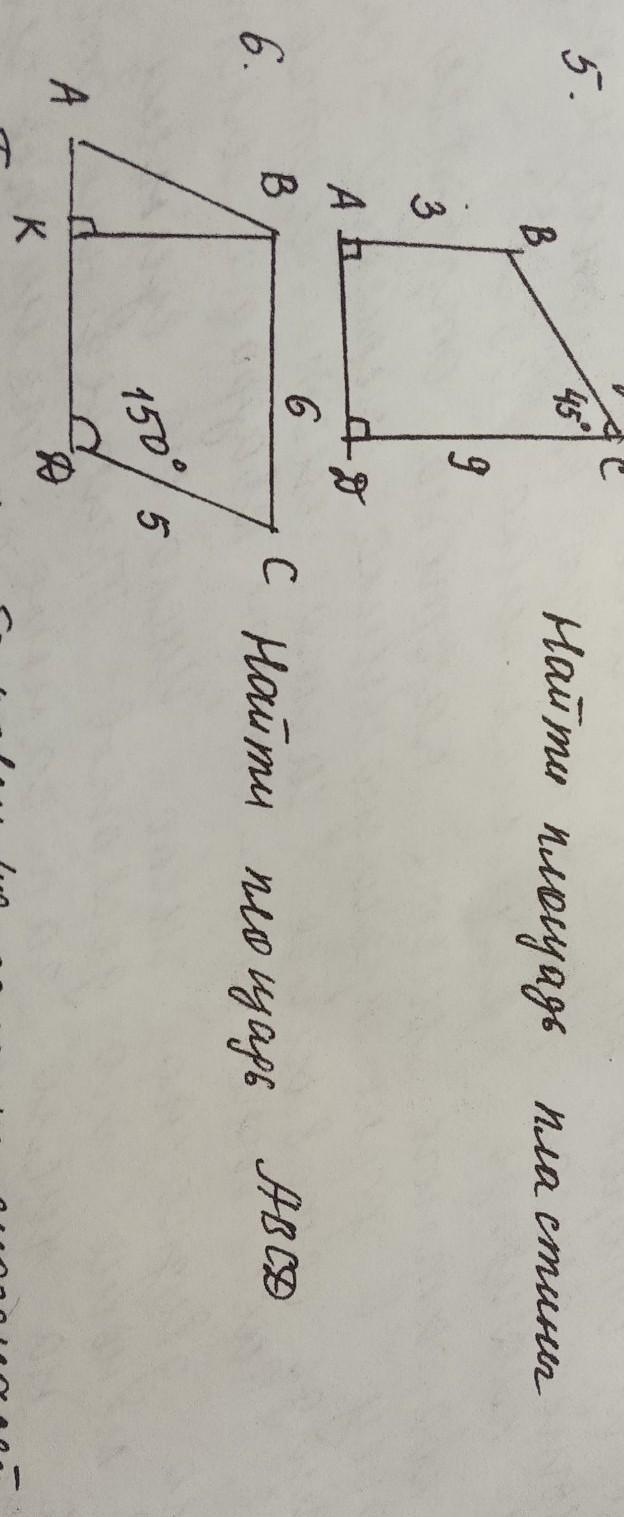 5.
A 3 B
45°
C
9
D
Найти площадь пластины
6.
A B
K
6
150°
5
D C
Найти площарь ABCD